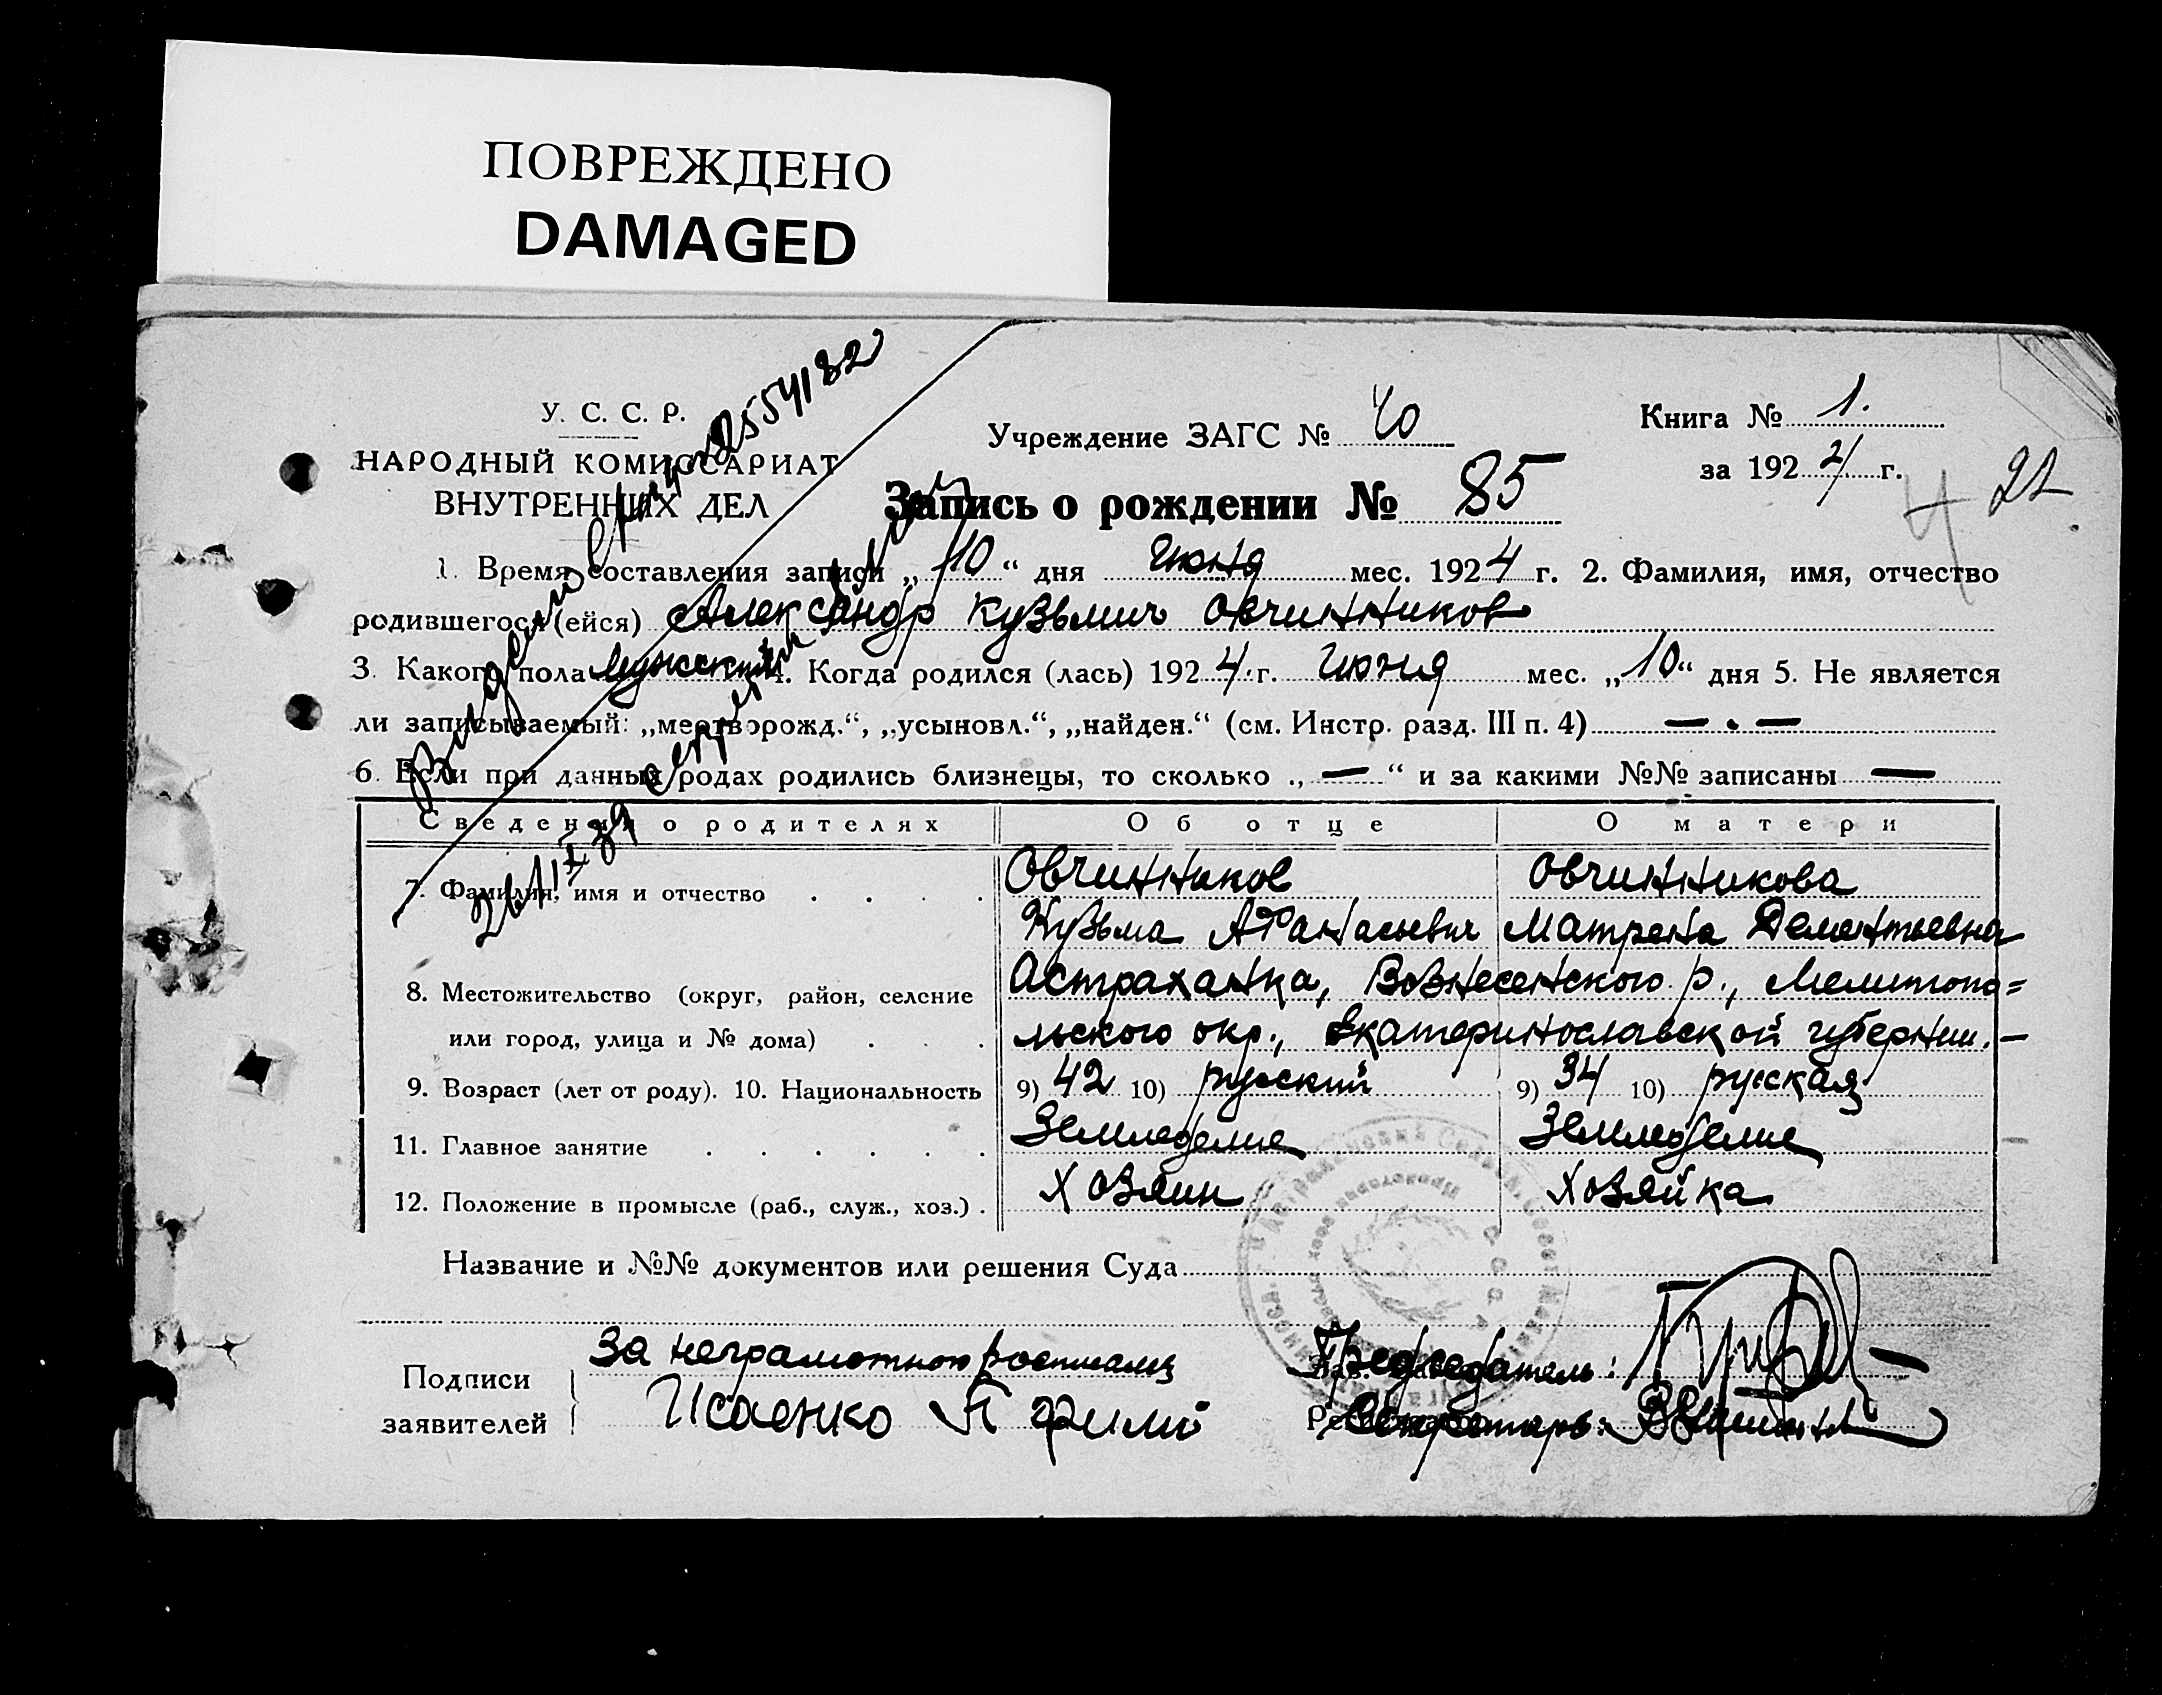 ПОВРЕЖДЕНО
DAMAGED
У. С. С. Р.
НАРОДНЫЙ КОМИССАРИАТ
ВНУТРЕННИХ ДЕЛ
Учреждение ЗАГС № 40
Книга № 1.
за 1924 г.
22
Запись о рождении № 85
1. Время составления записи „10“ дня июня мес. 1924 г. 2. Фамилия, имя, отчество
родившегося (ейся) Александр Кузьмич Овчинников
3. Какого пола Мужский 4. Когда родился (лась) 1924 г. июня мес. „10“ дня 5. Не является
ли записываемый: „мертворожд.“, „усыновл.“, „найден.“ (см. Инстр. разд. III п. 4) — . —
6. Если при данных родах родились близнецы, то сколько „—“ и за какими №№ записаны —
Сведения о родителях Об отце О матери
7. Фамилия, имя и отчество . . . . Овчинников Овчинникова
Кузьма Афанасьевич Матрена Дементьевна
8. Местожительство (округ, район, селение Астраханка, Вознесенского р., Мелитопо=
или город, улица и № дома) . . . льского окр., Екатеринославской губернии. —
9. Возраст (лет от роду). 10. Национальность 9) 42 10) русский 9) 34 10) русская
11. Главное занятие . . . . . . Земледелие Земледелие
12. Положение в промысле (раб., служ., хоз.) . Хозяин Хозяйка
Название и №№ документов или решения Суда
Подписи
заявителей
за неграмотною росписался
Исаенко
Председатель:
Секретарь: